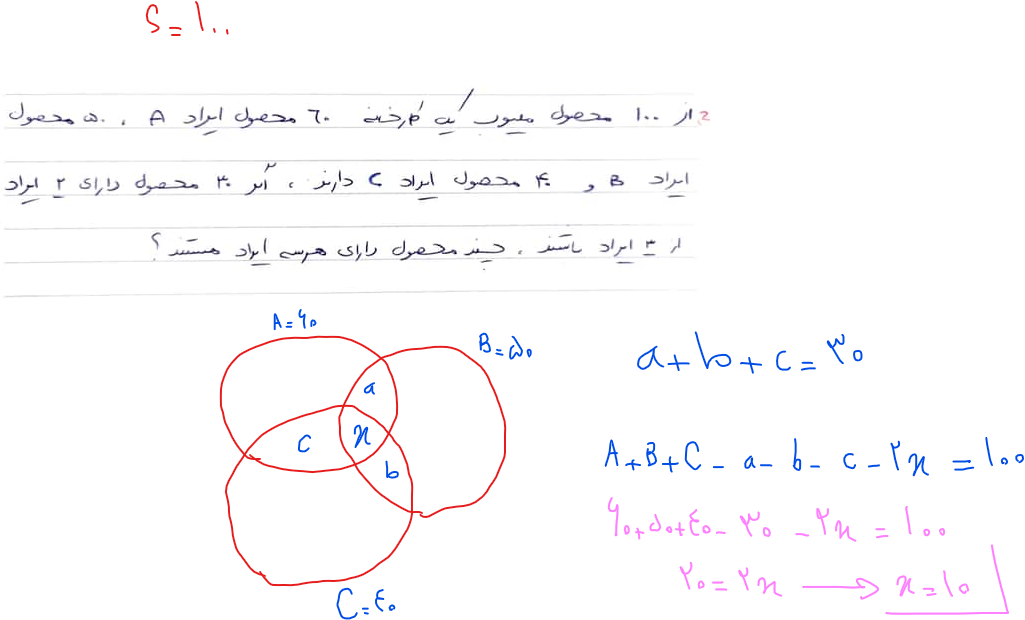 S = ۱۰۰
۲ از ۱۰۰ محصول معیوب یک کارخانه ۶۰ محصول ایراد A ، ۵۰ محصول
ایراد B و ۴۰ محصول ایراد C دارند ، اگر ۳۰ محصول دارای ۲ ایراد
از ۳ ایراد باشند ، چند محصول دارای هر سه ایراد هستند ؟
A = ۶۰
B = ۵۰
a
c
x
b
C = ۴۰
a + b + c = ۳۰
A + B + C - a - b - c - ۲x = ۱۰۰
۶۰ + ۵۰ + ۴۰ - ۳۰ - ۲x = ۱۰۰
۲۰ = ۲x → x = ۱۰